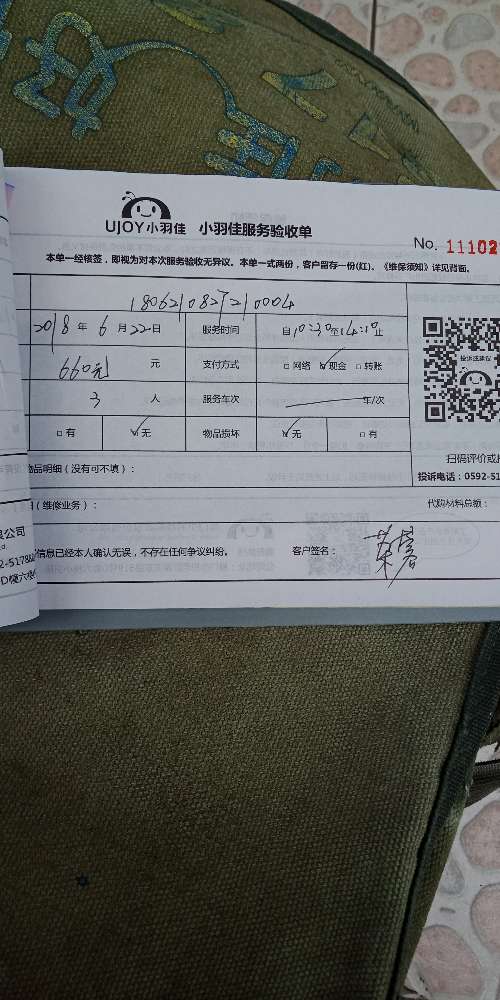 UJOY小羽佳 小羽佳服务验收单
No. 11102
本单一经核签，即视为对本次服务验收无异议。本单一式两份，客户留存一份(红)。《维保须知》详见背面。
180621082210004
2018年6月22日 服务时间 自10:30至14:10止
660元 元 支付方式 □网络 ☑现金 □转账
3 人 服务车次 车/次
投诉或建议
□有 ☑无 物品损坏 ☑无 □有
扫码评价或
物品明细（没有可不填）：
投诉电话：0592-51
（维修业务）： 代购材料总额：
限公司
信息已经本人确认无误，不存在任何争议纠纷。 客户签名：
2-5178
D幢六楼